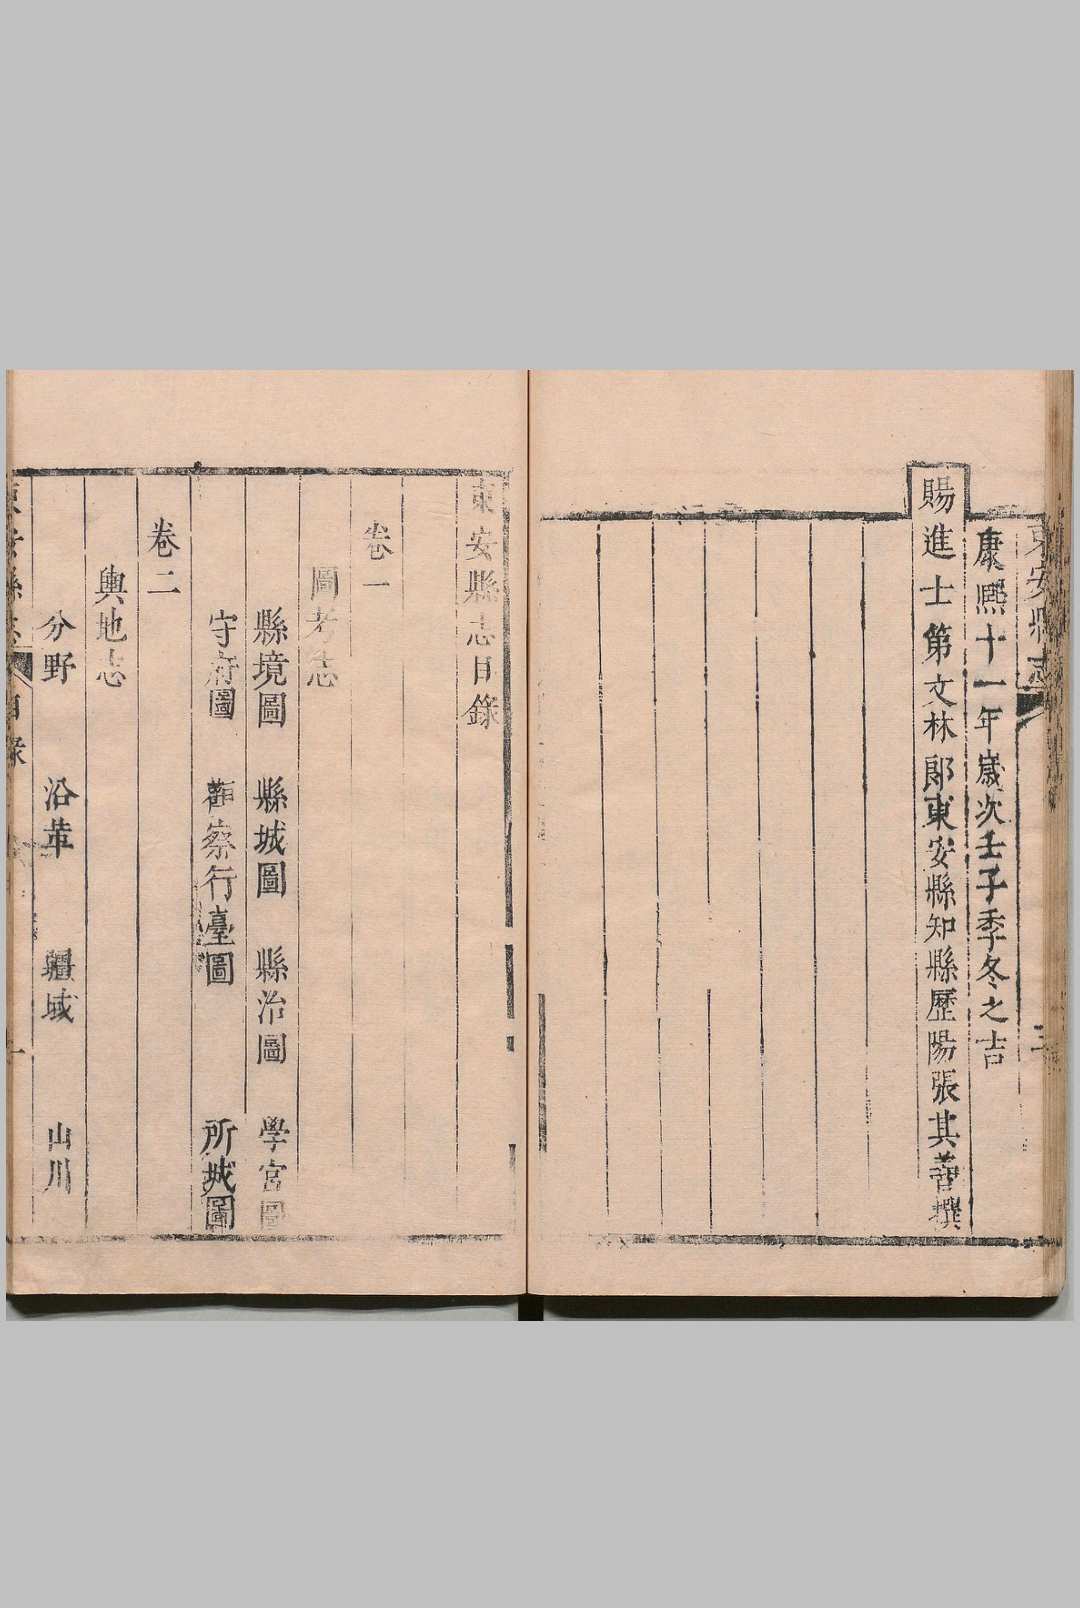 東安縣志
康熙十一年歲次壬子季冬之吉
賜進士第文林郎東安縣知縣歷陽張其善撰
東安縣志目錄
卷一
圖考志
縣境圖 縣城圖 縣治圖 學宮圖
守府圖 觀察行臺圖 所城圖
卷二
輿地志
分野 沿革 疆域 山川
東安縣志 目錄 一